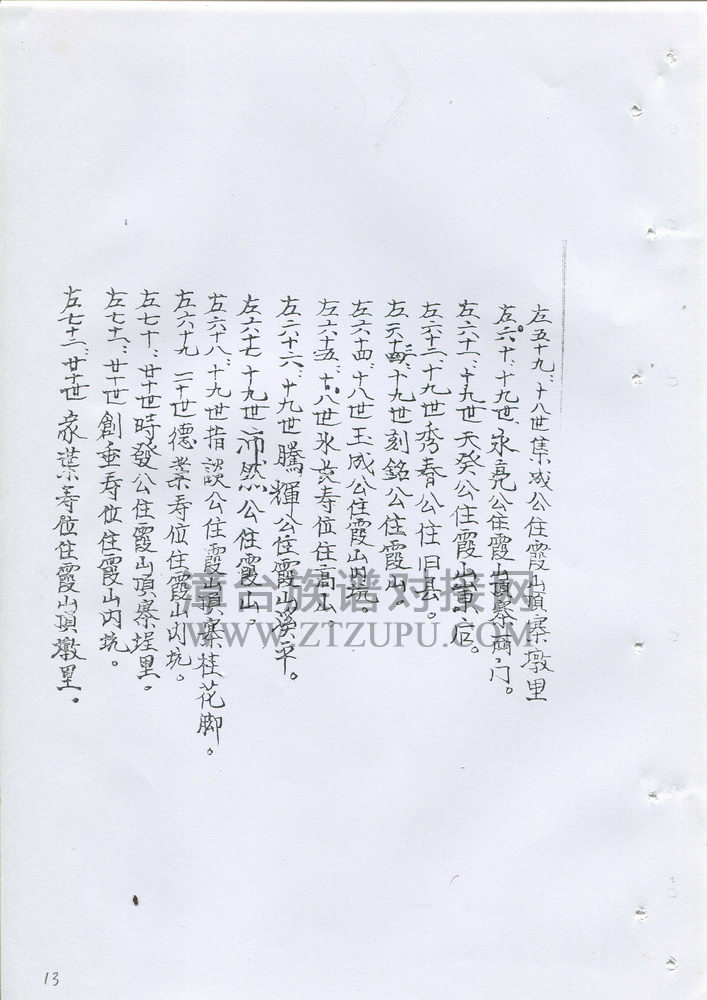 左五十九、十八世集成公住霞山頂寨墩里
左六十、十九世永亮公住霞山頂寨前门。
左六十一、十九世天癸公住霞山
左六十二、十九世秀春公住旧县。
左六十三、十九世刻銘公住霞山。
左六十四、十八世玉成公住霞山内坑
左六十五、十八世 寿位住高山。
左六十六、十九世騰輝公住霞山溪平。
左六十七、十九世沛然公住霞山。
左六十八、十九世指談公住霞山頂寨桂花脚。
左六十九 二十世德業寿位住霞山内坑。
左七十、廿世時發公住霞山頂寨埕里。
左七十一、廿世創垂寿位住霞山内坑。
左七十二、廿世家業寿位住霞山頂墩里。
漳台族谱对接网
WWW.ZTZUPU.COM
13